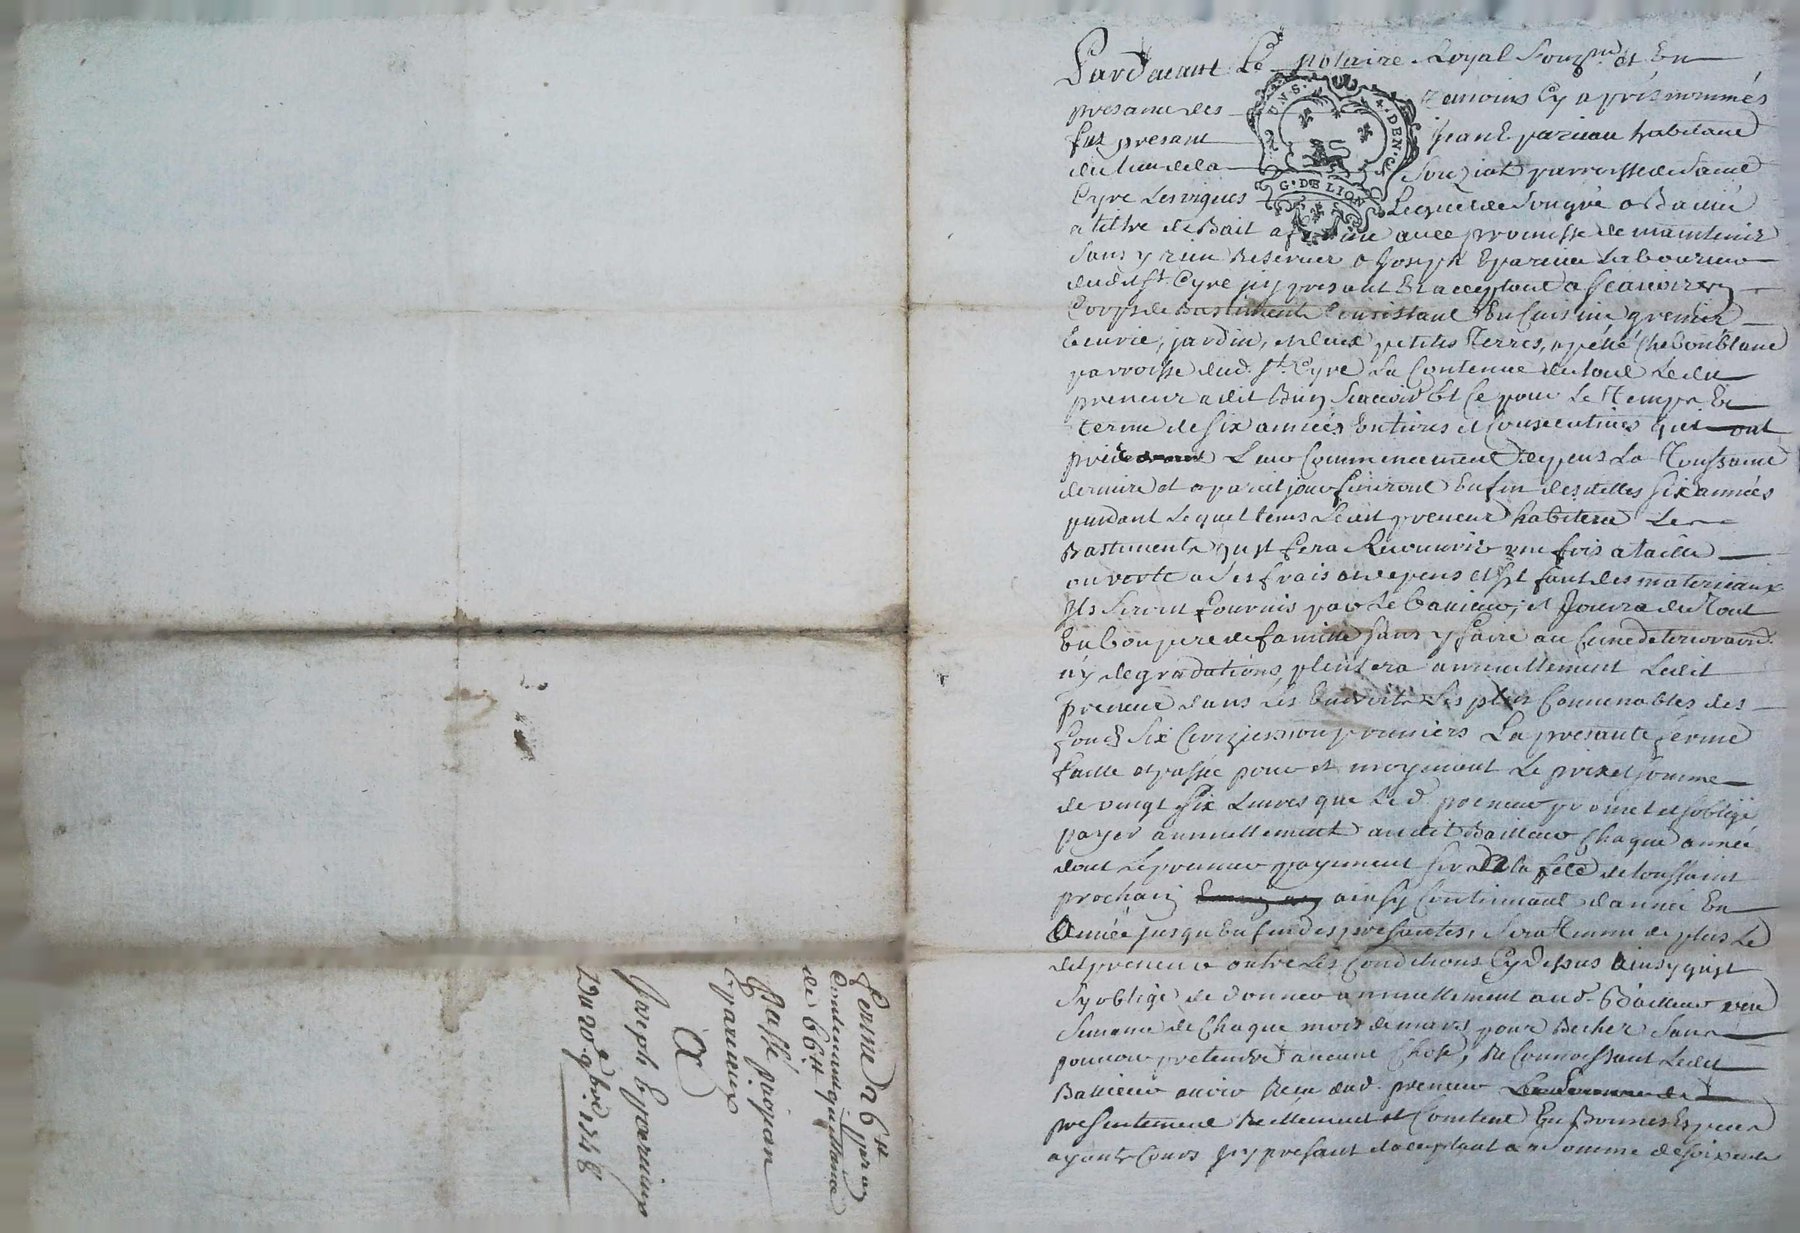 Pardevant Le notaire Royal Souz.né et En
presance des Temoins Cy aprés nommés
fut presant Jean Eyparieau habitant
du lieu de la Souziat parroisse de Saint
Cyre Les vignes Lequel de Son gré a Baillié
a tiltre de Bail a ferme avec promesse de maintenir
Sans y rien Reserver a Joseph Eyparieu Laboureur
dudit St. Cyre icy present Et acceptant a Sçauoir un
Corps de Bastiments Consistant En Cuisine grenier
Ecurie, jardin, et deux petites Terres, appellé Chebon blanc
parroisse dud. St. Cyre La Contenue du tout Ledit
preneur a dit Bien Scauoir Et Ce pour Le Temps Et
terme de Six années Entieres et Consecutives qui ont
pris Leur Commencement depuis La Toussaint
derniere et a pareil jour finiront En fin desdittes Six années
pendant Lequel tems Ledit preneur habitera Les
Bastiments qu'il fera Recouvrir une fois a taille
ouverte a Ses frais et depens et s'il faut des materieaux
Ils Seront fournis par Le Bailleur, et Jouira du Tout
En bon pere de famille Sans y faire aucune deterioraôn
ny degradations, plentera annuellement Ledit
preneur dans Les Endroits Les plus Convenables des
fonds Six Cerisiers ou pomiers La presante ferme
faitte et passée pour et moyenant Le prix et Somme
de vingt Six Livres que Led. preneur promet et s'oblige
payer annuellement audit Bailleur Chaque année
dont Le premier payement Sera a la fete de toussaint
prochain ainsy Continuant d'année En
Année jusqu'En fin des presantes, Sera Tenu de plus Le
dit preneur outre Les Conditions Cy Dessus Ainsy qu'il
S'y oblige de donner annuellement aud. Bailleur une
Semaine de Chaque mois de mars pour Becher Sans
pouvoir pretendre aucune Chose, Reconnoissant Ledit
Bailleur avoir Reçu dud. preneur
presentement Reellement et Comtent En Bonnes Especes
ayants Cours icy presant et acceptant La Somme de Soixente
G. DE LION
Ferme de 26tt par an
Contenant quittance
de 66tt
Passé par jean
Eyparieux
A
Joseph Eyparieux
Du 20e 9bre 1748